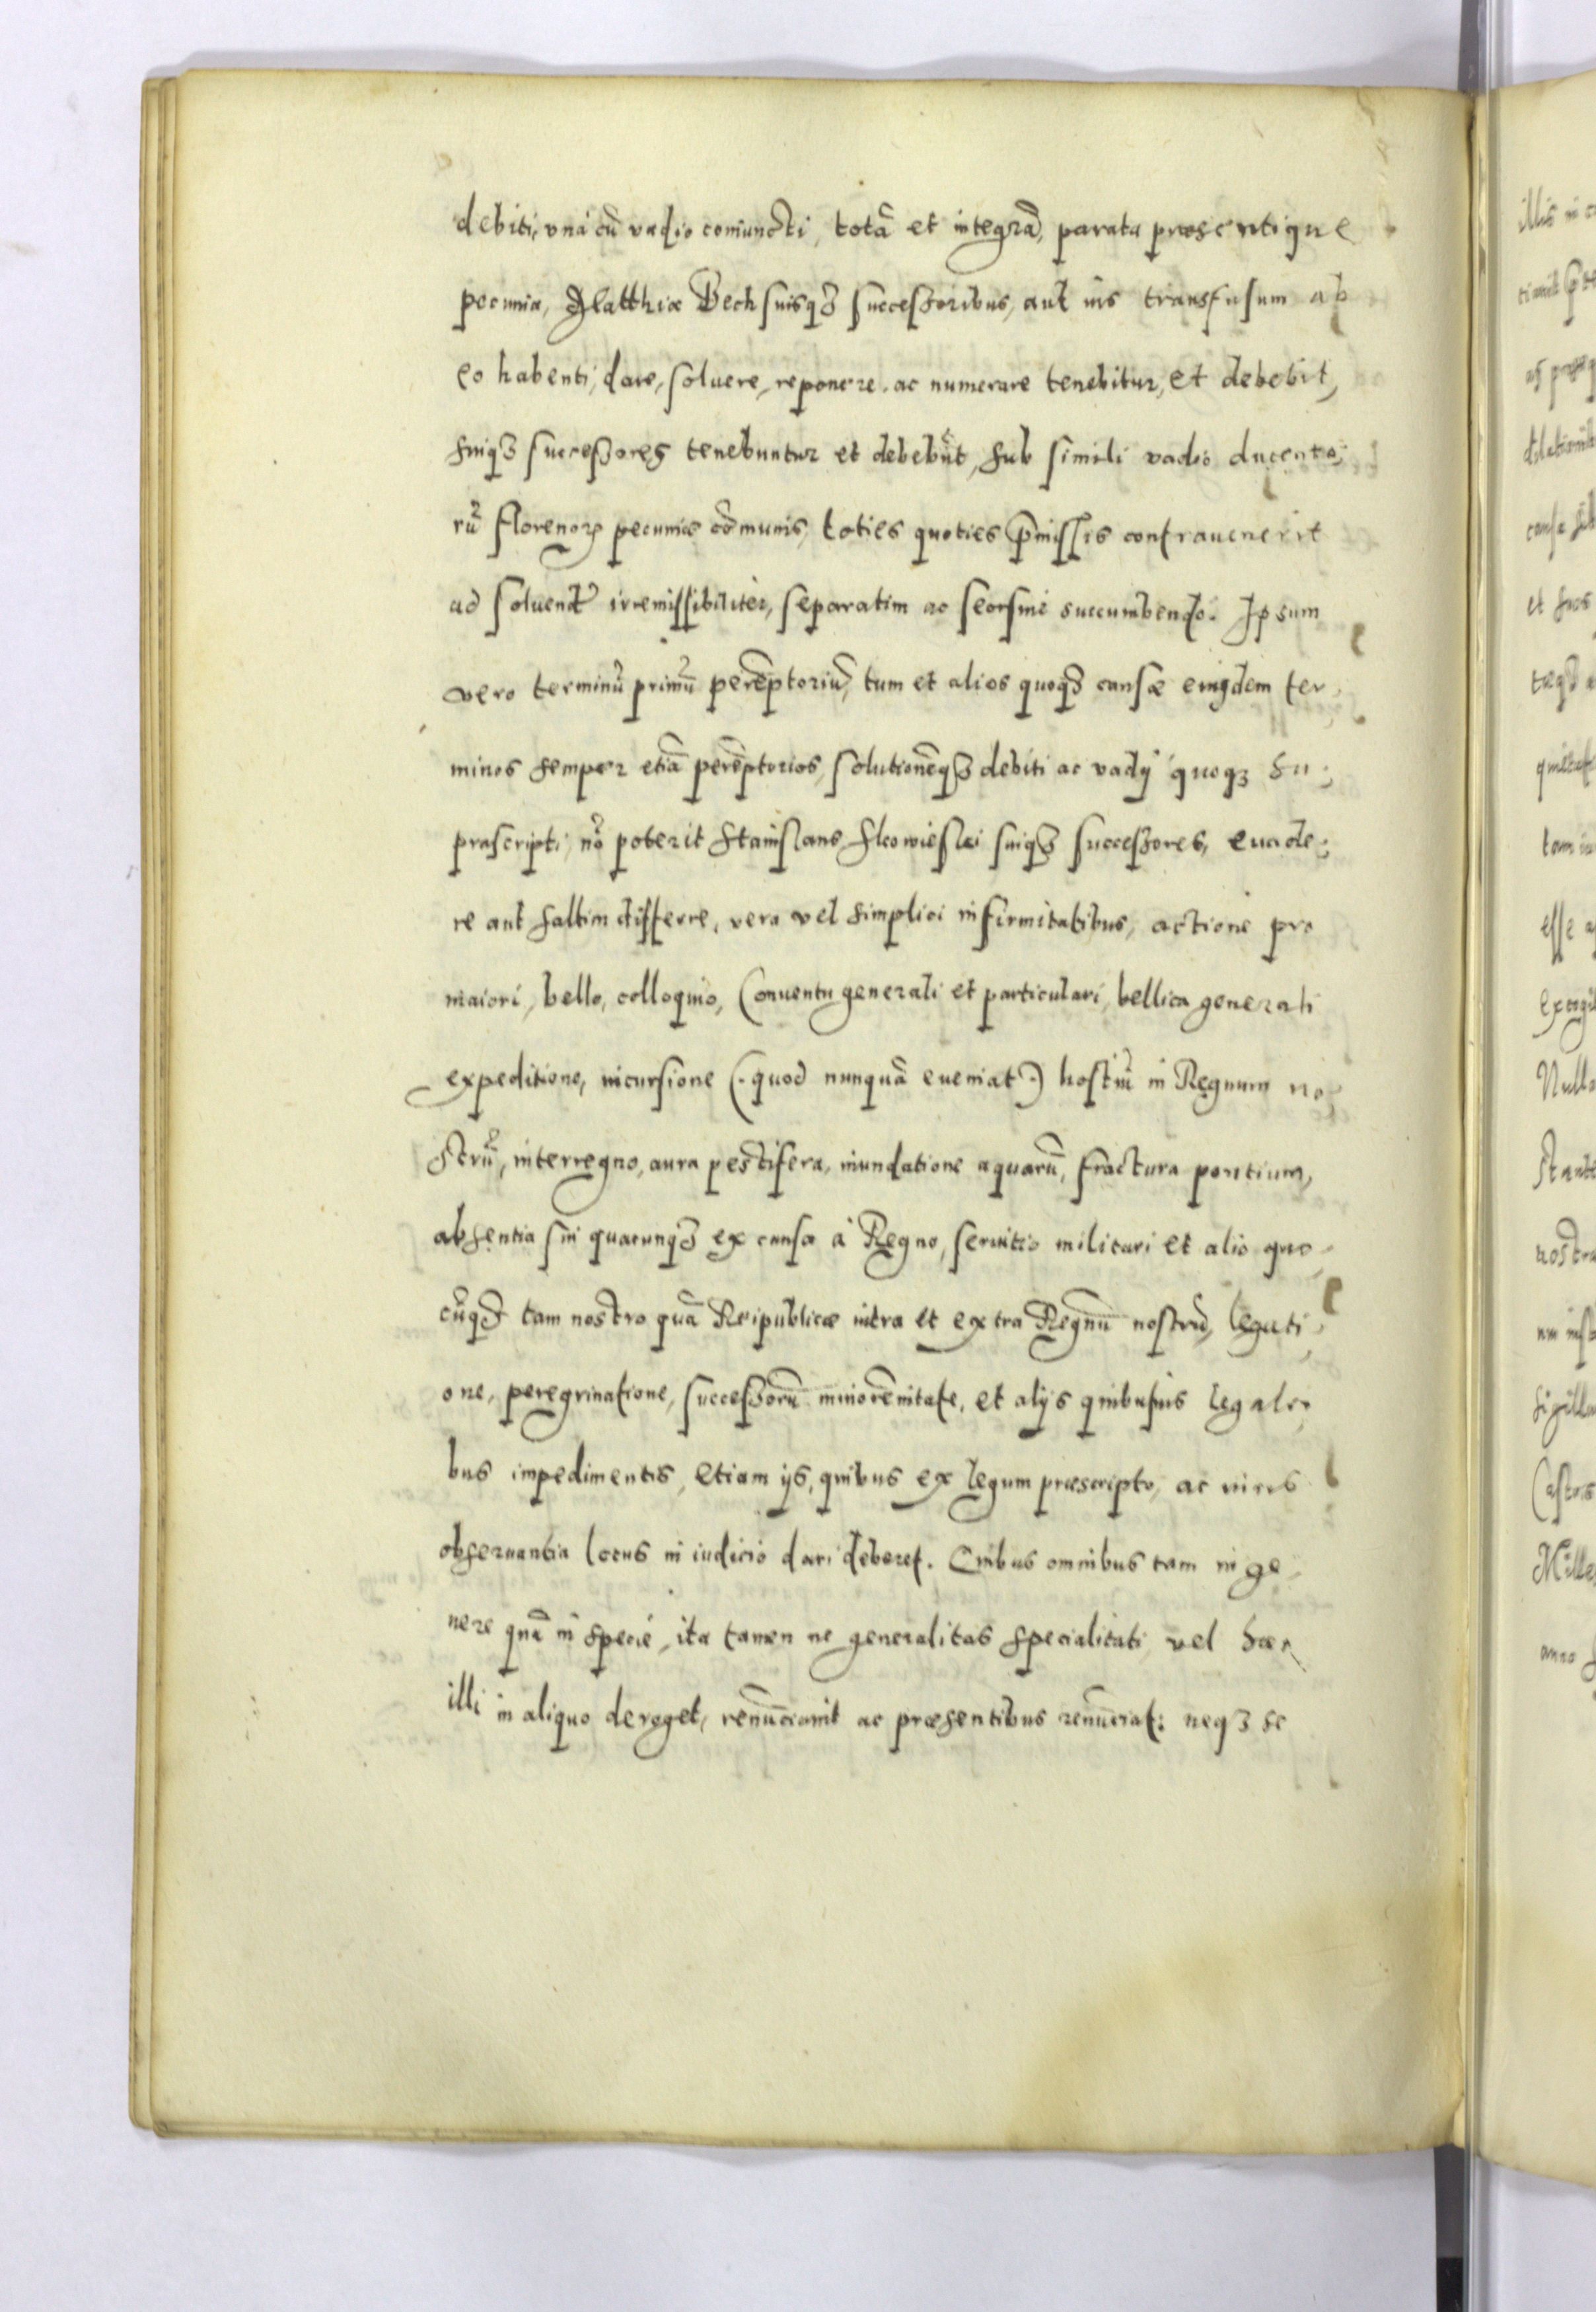 debiti, vná cũ vadio coniuncti, totã et integrã, parata præsentique
pecunia, Matthiæ Bech suisq₃ successoribus, aut ius transfusum ab
eo habenti, dare, soluere, reponere. ac numerare tenebitur, et debebit,
suiq₃ successores tenebuntur et debebũt, sub simili vadio ducento,
rũ florenoꝝ pecuniæ cõmunis, toties quoties p̃missis contrauenerit
ad soluend̃ irremissibiliter, separatim ac seorsiue succumbendo. Ipsum
vero terminũ primũ perẽptoriũ, tum et alios quoq₃ causæ eiusdem ter,
minos semper etiã perẽptorios, solutionẽq₃ debiti ac vadÿ quoq₃ su,
prascripti, nõ poterit Stanislaus suiq₃ successores, euade,
re aut saltim differre, vera vel simplici infirmitatibus, actione pro
maiori, bello, colloquio, Conuentu generali et particulari, bellica generali
expeditione, incursione (. quod nunquã eueniat .) hostiũ in Regnum no,
strũ, interregno, aura pestifera, inundatione aquarũ, fractura pontium,
absentia sui quacunq₃ ex causa á Regno, seruitio militari et alio quo,
cũq₃ tam nostro quã Reipublicæ intra et extra Regnũ nostrũ, legati,
one, peregrinatione, successorũ minorẽnitate, et alÿs quibusuis legali,
bus impedimentis, etiam ÿs, quibus ex legum præscripto, ac iuris
obseruantia locus in iudicio dari deberet. Quibus omnibus tam in ge,
nere quã in specie, ita tamen ne generalitas specialitati, vel hæc
illi in aliquo deroget, renũciauit ac præsentibus renũciat: neq₃ se